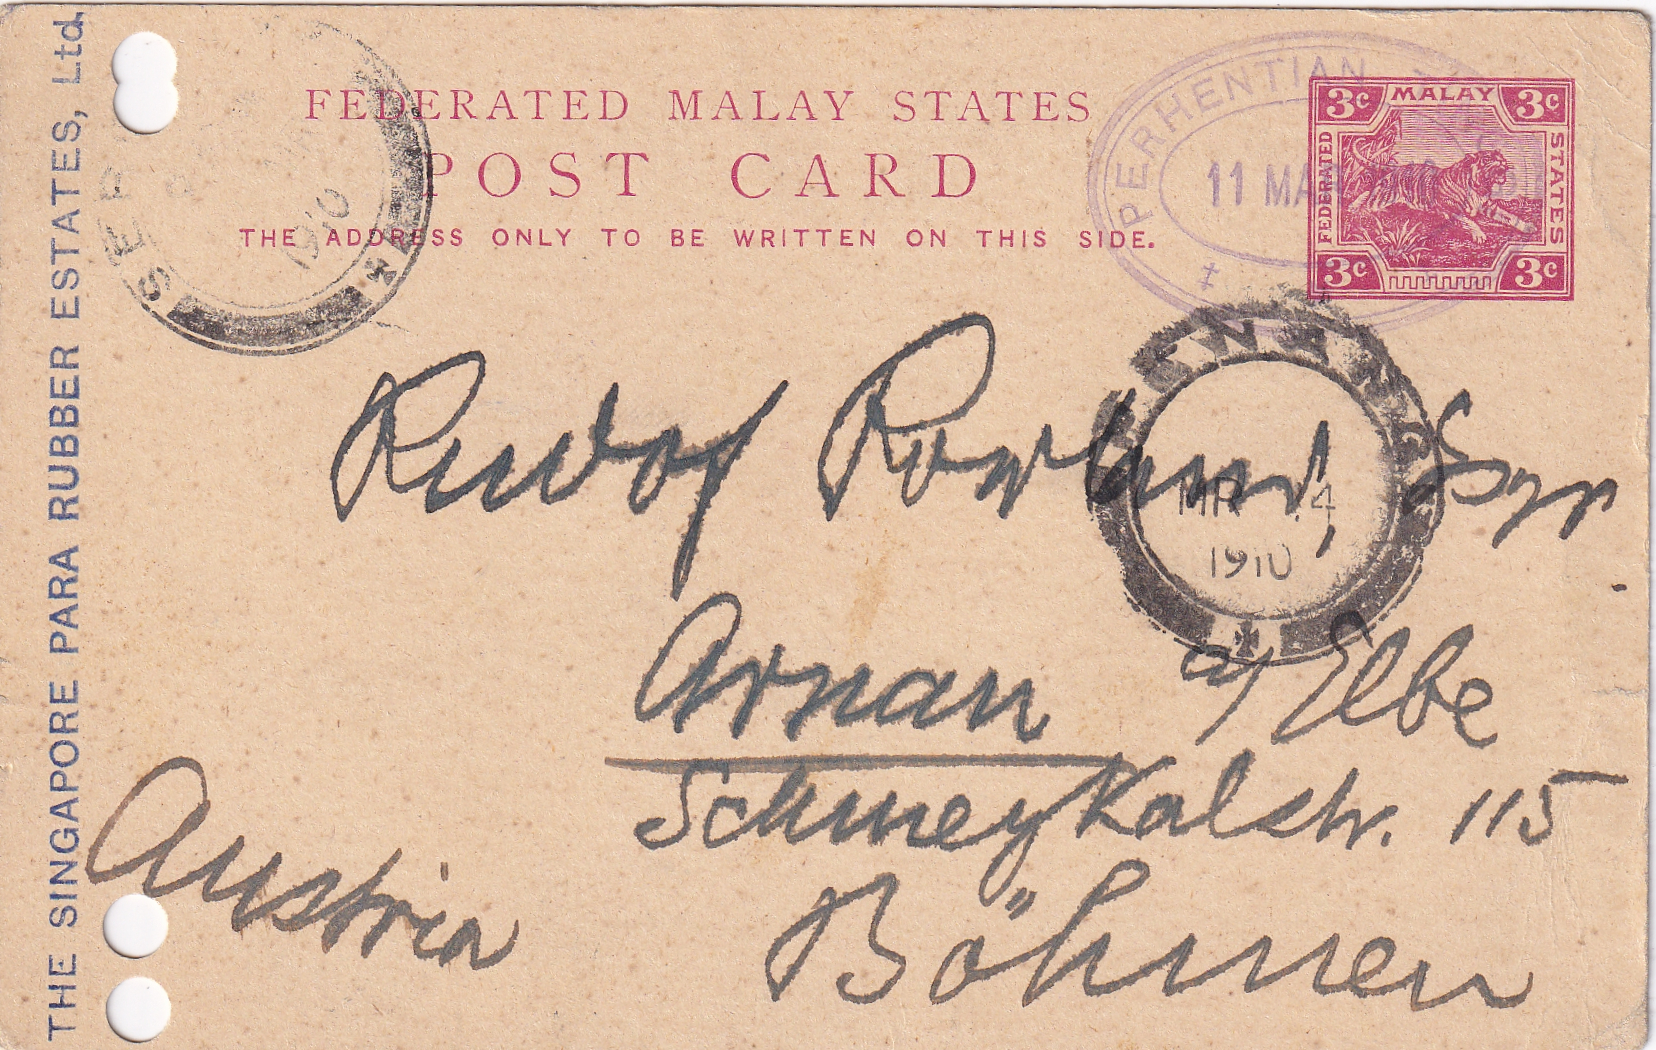 THE SINGAPORE PARA RUBBER ESTATES, Ltd.
FEDERATED MALAY STATES
POST CARD
THE ADDRESS ONLY TO BE WRITTEN ON THIS SIDE.
PERHENTIAN
11 MAR
3c MALAY 3c
FEDERATED
STATES
3c 3c
1910
PENANG
MR 14
1910
Rudolf Esqr
Arnau a/Elbe
Schmeykalstr. 115
Böhmen
Austria